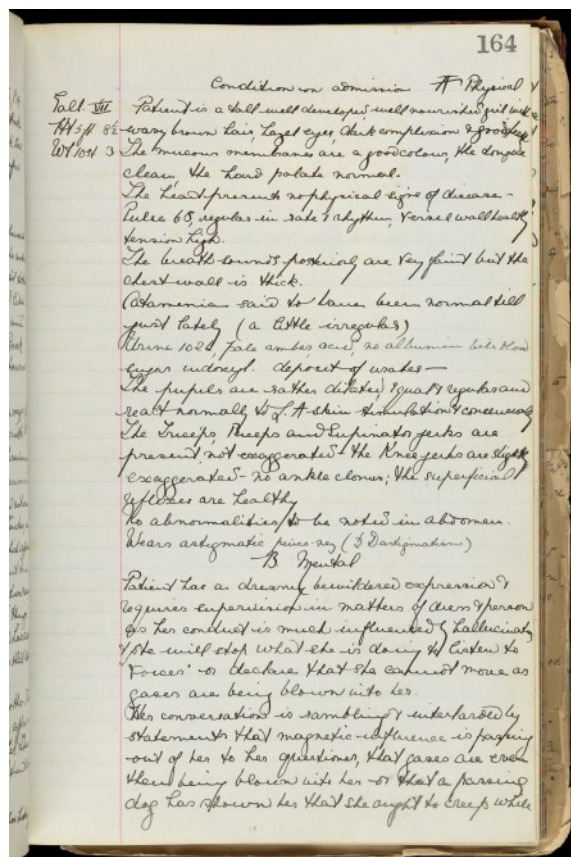 164
Condition on admission A Physical
Tall VII Patient is a tall well developed well nourished girl with
Ht 5ft 8½ wavy brown hair, hazel eyes, dark complexion & good
Wt 10st 3 The mucous membranes are a good colour, the tongue
clean, the hard palate normal.
The heart presents no physical signs of disease -
Pulse 68, regular in rate & rhythm, vessel wall healthy
tension high.
The breath sounds posteriorly are very faint but the
chest wall is thick.
Catamenia said to have been normal till
just lately (a little irregular)
Urine 1024, pale amber, acid, no albumin bile blood
sugar indoxyl. deposit of urates -
The pupils are rather dilated, equal & regular and
react normally to L. A skin stimulation & consensually
The Triceps, Biceps and Supinator jerks are
present, not exaggerated - the Knee jerks are slightly
exaggerated - no ankle clonus; the superficial
reflexes are healthy
No abnormalities to be noted in abdomen.
Wears astigmatic pince-nez
B. Mental
Patient has a dreamy bewildered expression &
requires supervision in matters of dress & person
as her conduct is much influenced by hallucinations
& she will stop what she is doing to listen to
'voices' or declare that she cannot move as
gases are being blown into her.
Her conversation is rambling & interlarded by
statements that magnetic influence is passing
out of her to her questioner, that gases are even
then being blown into her or that a passing
dog has shown her that she ought to creep while